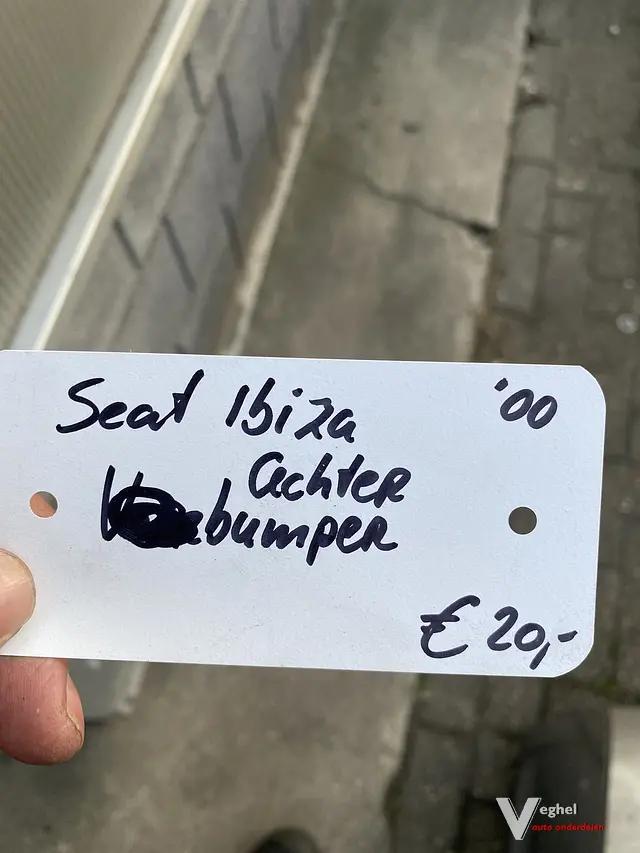 Seat Ibiza '00
achter
bumper
€ 20,-
Veghel
auto onderdelen